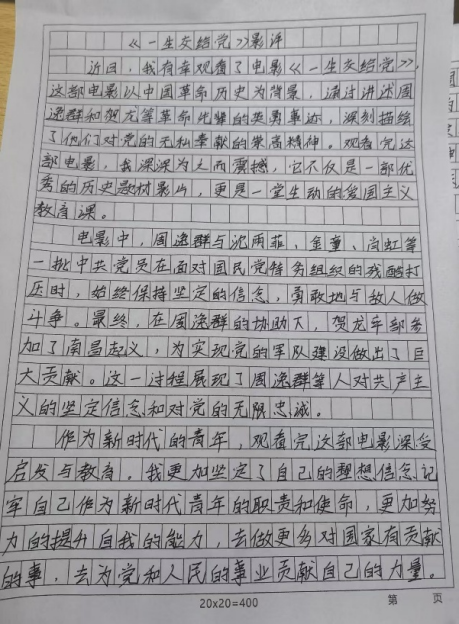 《一生交给党》影评
近日，我有幸观看了电影《一生交给党》，
这部电影以中国革命历史为背景，通过讲述周
逸群和贺龙等革命先辈的英勇事迹，深刻描绘
了他们对党的无私奉献的崇高精神。观看完这
部电影，我深深为之而震撼，它不仅是一部优
秀的历史题材影片，更是一堂生动的爱国主义
教育课。
电影中，周逸群与沈雨菲、金童、尚虹等
一批中共党员在面对国民党特务组织的残酷打
压时，始终保持坚定的信念，勇敢地与敌人做
斗争。最终，在周逸群的协助下，贺龙率部参
加了南昌起义，为实现党的军队建设做出了巨
大贡献。这一过程展现了周逸群等人对共产主
义的坚定信念和对党的无限忠诚。
作为新时代的青年，观看完这部电影深受
启发与教育。我更加坚定了自己的理想信念记
牢自己作为新时代青年的职责和使命，更加努
力的提升自我的能力，去做更多对国家有贡献
的事，去为党和人民的事业贡献自己的力量。
20x20=400 第 页